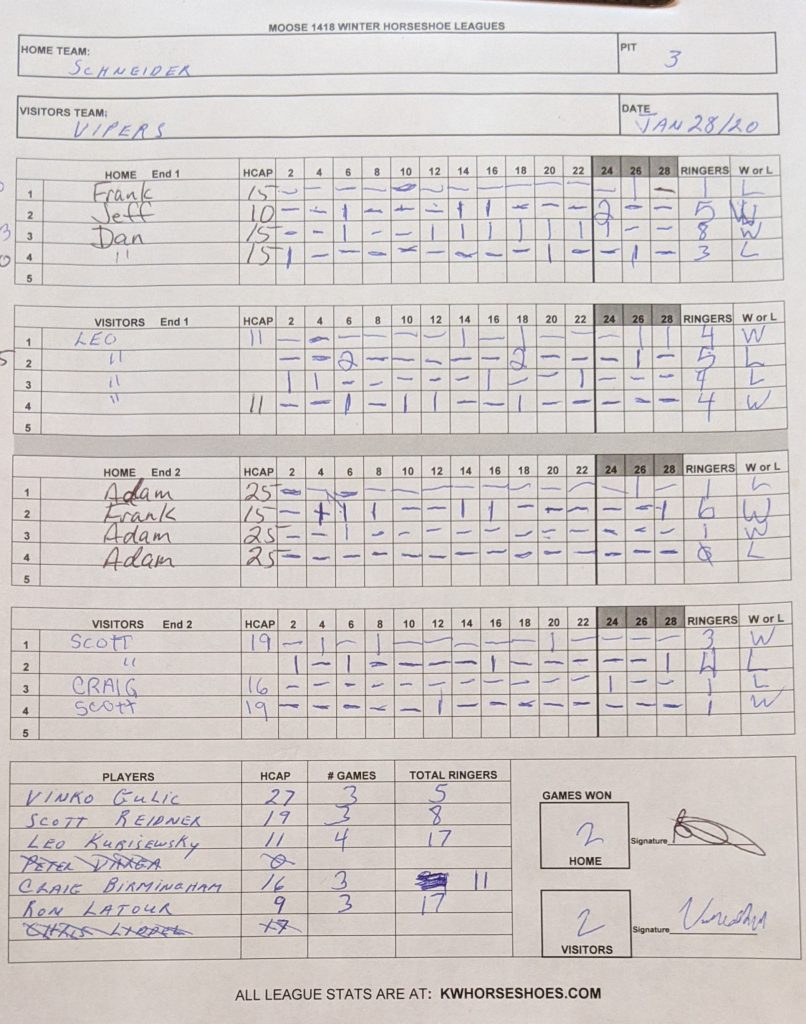 MOOSE 1418 WINTER HORSESHOE LEAGUES
HOME TEAM: SCHNEIDER PIT 3
VISITORS TEAM: VIPERS DATE JAN 28/20
HOME End 1 HCAP 2 4 6 8 10 12 14 16 18 20 22 24 26 28 RINGERS W or L
1 Frank 15 – – – – – – – – – – – – 1 – 1 L
2 Jeff 10 – – 1 – – – 1 1 – – – 2 – – 5 W
3 Dan 15 – – 1 – – 1 1 1 1 1 1 1 – – 8 W
4 " 15 1 – – – – – – – – 1 – – 1 – 3 L
5
VISITORS End 1 HCAP 2 4 6 8 10 12 14 16 18 20 22 24 26 28 RINGERS W or L
1 LEO 11 – – – – – – 1 – 1 – – – 1 1 4 W
2 " – – 2 – – – – – 2 – – – 1 – 5 L
3 " 1 1 – – – – – 1 – – 1 – – – 4 L
4 " 11 – – 1 – 1 1 – – 1 – – – – – 4 W
5
HOME End 2 HCAP 2 4 6 8 10 12 14 16 18 20 22 24 26 28 RINGERS W or L
1 Adam 25 – – – – – – – – – – – – 1 – 1 L
2 Frank 15 – 1 1 1 – – 1 1 – – – – – 1 6 W
3 Adam 25 – – 1 – – – – – – – – – – – 1 W
4 Adam 25 – – – – – – – – – – – – – – 0 L
5
VISITORS End 2 HCAP 2 4 6 8 10 12 14 16 18 20 22 24 26 28 RINGERS W or L
1 SCOTT 19 – 1 – 1 – – – – – 1 – – – – 3 W
2 " 1 – 1 – – – – 1 – – – – – 1 4 L
3 CRAIG 16 – – – – – – – – – – – 1 – – 1 L
4 SCOTT 19 – – – – – 1 – – – – – – – – 1 W
5
PLAYERS HCAP # GAMES TOTAL RINGERS
VINKO GULIC 27 3 5
SCOTT REIDNER 19 3 8
LEO KURISEWSKY 11 4 17
PETER 0
CRAIG BIRMINGHAM 16 3 11
RON LATOUR 9 3 17
CHRIS 17
GAMES WON
2
HOME
Signature
2
VISITORS
Signature
ALL LEAGUE STATS ARE AT: KWHORSESHOES.COM